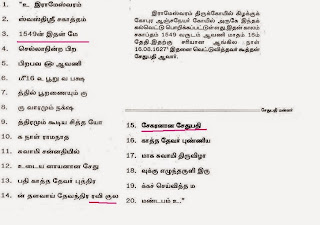 1. "உ இராமேஸ்வரம்
2. ஸ்வஸ்திஸ்ரீ சகாத்தம்
3. 1549ன் இதன் மே
4. செல்லாநின்ற பிற
5. பிறபவ ஆவணி
6. மீ 16 உ பூறு வ பக்ஷ
7. த்தில் பூறணையும் கு
8. கு வாரமும் நக்ஷ
9. த்திரமும் கூடிய சித்த யோ
10. க நாள் ராமநாத
11. சுவாமி சன்னதியில்
12. உடைய னாயனான சேது
13. பதி காத்த தேவர் புத்திர
14. ன் தளவாய் தேவந்திர ரவி குல
இராமேஸ்வரம் திருக்கோயில் கிழக்குக்
கோபுர ஆஞ்சநேயர் கோயில் அருகே இந்தக்
கல்வெட்டு பொறிக்கப்பட்டுள்ளது. இதன் காலம்
சகாப்தம் 1549 வருடம் ஆவணி மாதம் 15ம்
தேதி. இதற்கு சரியான ஆங்கில நாள்
16.08.1627 இதனை வெட்டுவித்தவர் கூத்தன்
சேதுபதி ஆவார்.
சேதுபதி மன்னர்
15. சேகரனான சேதுபதி
16. காத்த தேவர் புண்ணிய
17. மாக சுவாமி திருவிழா
18. வுக்கு எழுந்தருளி இரு
19. க்கச் செய்வித்த ம
20. ண்டபம் உ.."